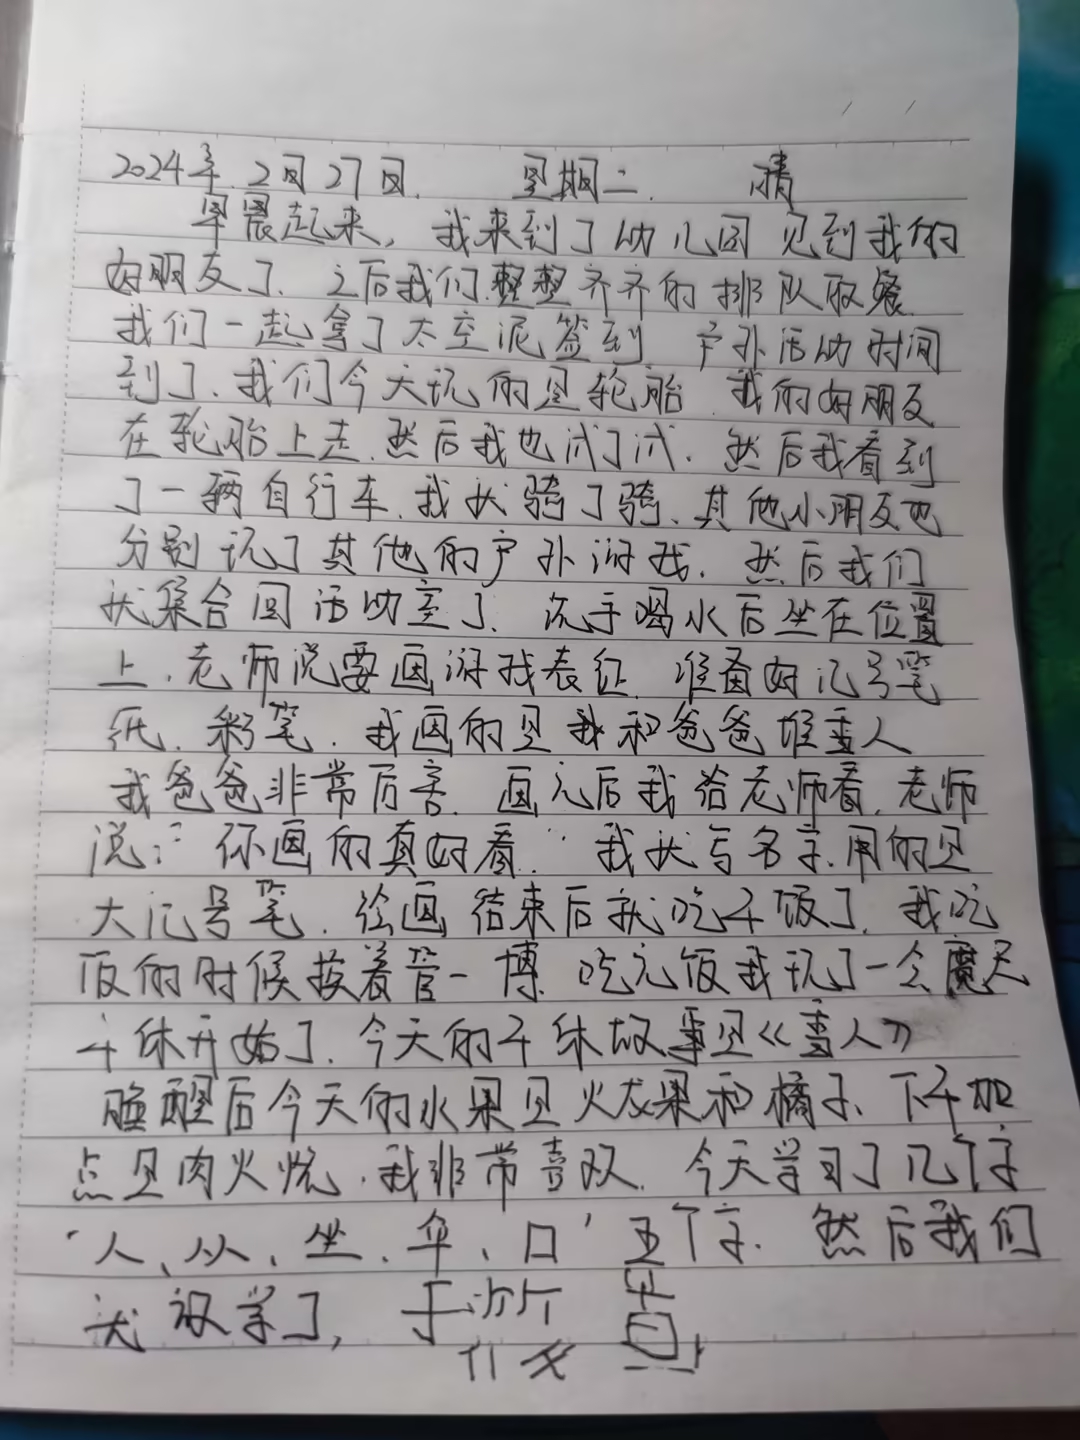 2024年 2月27日. 星期二. 晴
早晨起来, 我来到了幼儿园 见到我的
好朋友了. 之后我们整整齐齐的排队取餐
我们一起拿了太空泥签到 户外活动时间
到了. 我们今天玩的是轮胎 我的好朋友
在轮胎上走. 然后我也试了试. 然后我看到
了一辆自行车. 我状骑了骑. 其他小朋友也
分别玩了其他的户外游戏. 然后我们
状集合回活动室了. 洗手喝水后坐在位置
上. 老师说要画游戏表征. 准备好记号笔
纸. 彩笔. 我画的是我和爸爸堆雪人
我爸爸非常厉害. 画完后我给老师看. 老师
说:"你画的真好看." 我状写名字. 用的是
大记号笔. 绘画结束后就吃午饭了. 我吃
饭的时候挨着管一博. 吃完饭我玩了一会魔尺
午休开始了. 今天的午休故事是《雪人》
睡醒后今天的水果是火龙果和橘子. 下午加
点是肉火烧. 我非常喜欢. 今天学习了几个字
"人、从、坐、伞、口"五个字. 然后我们
状放学了,